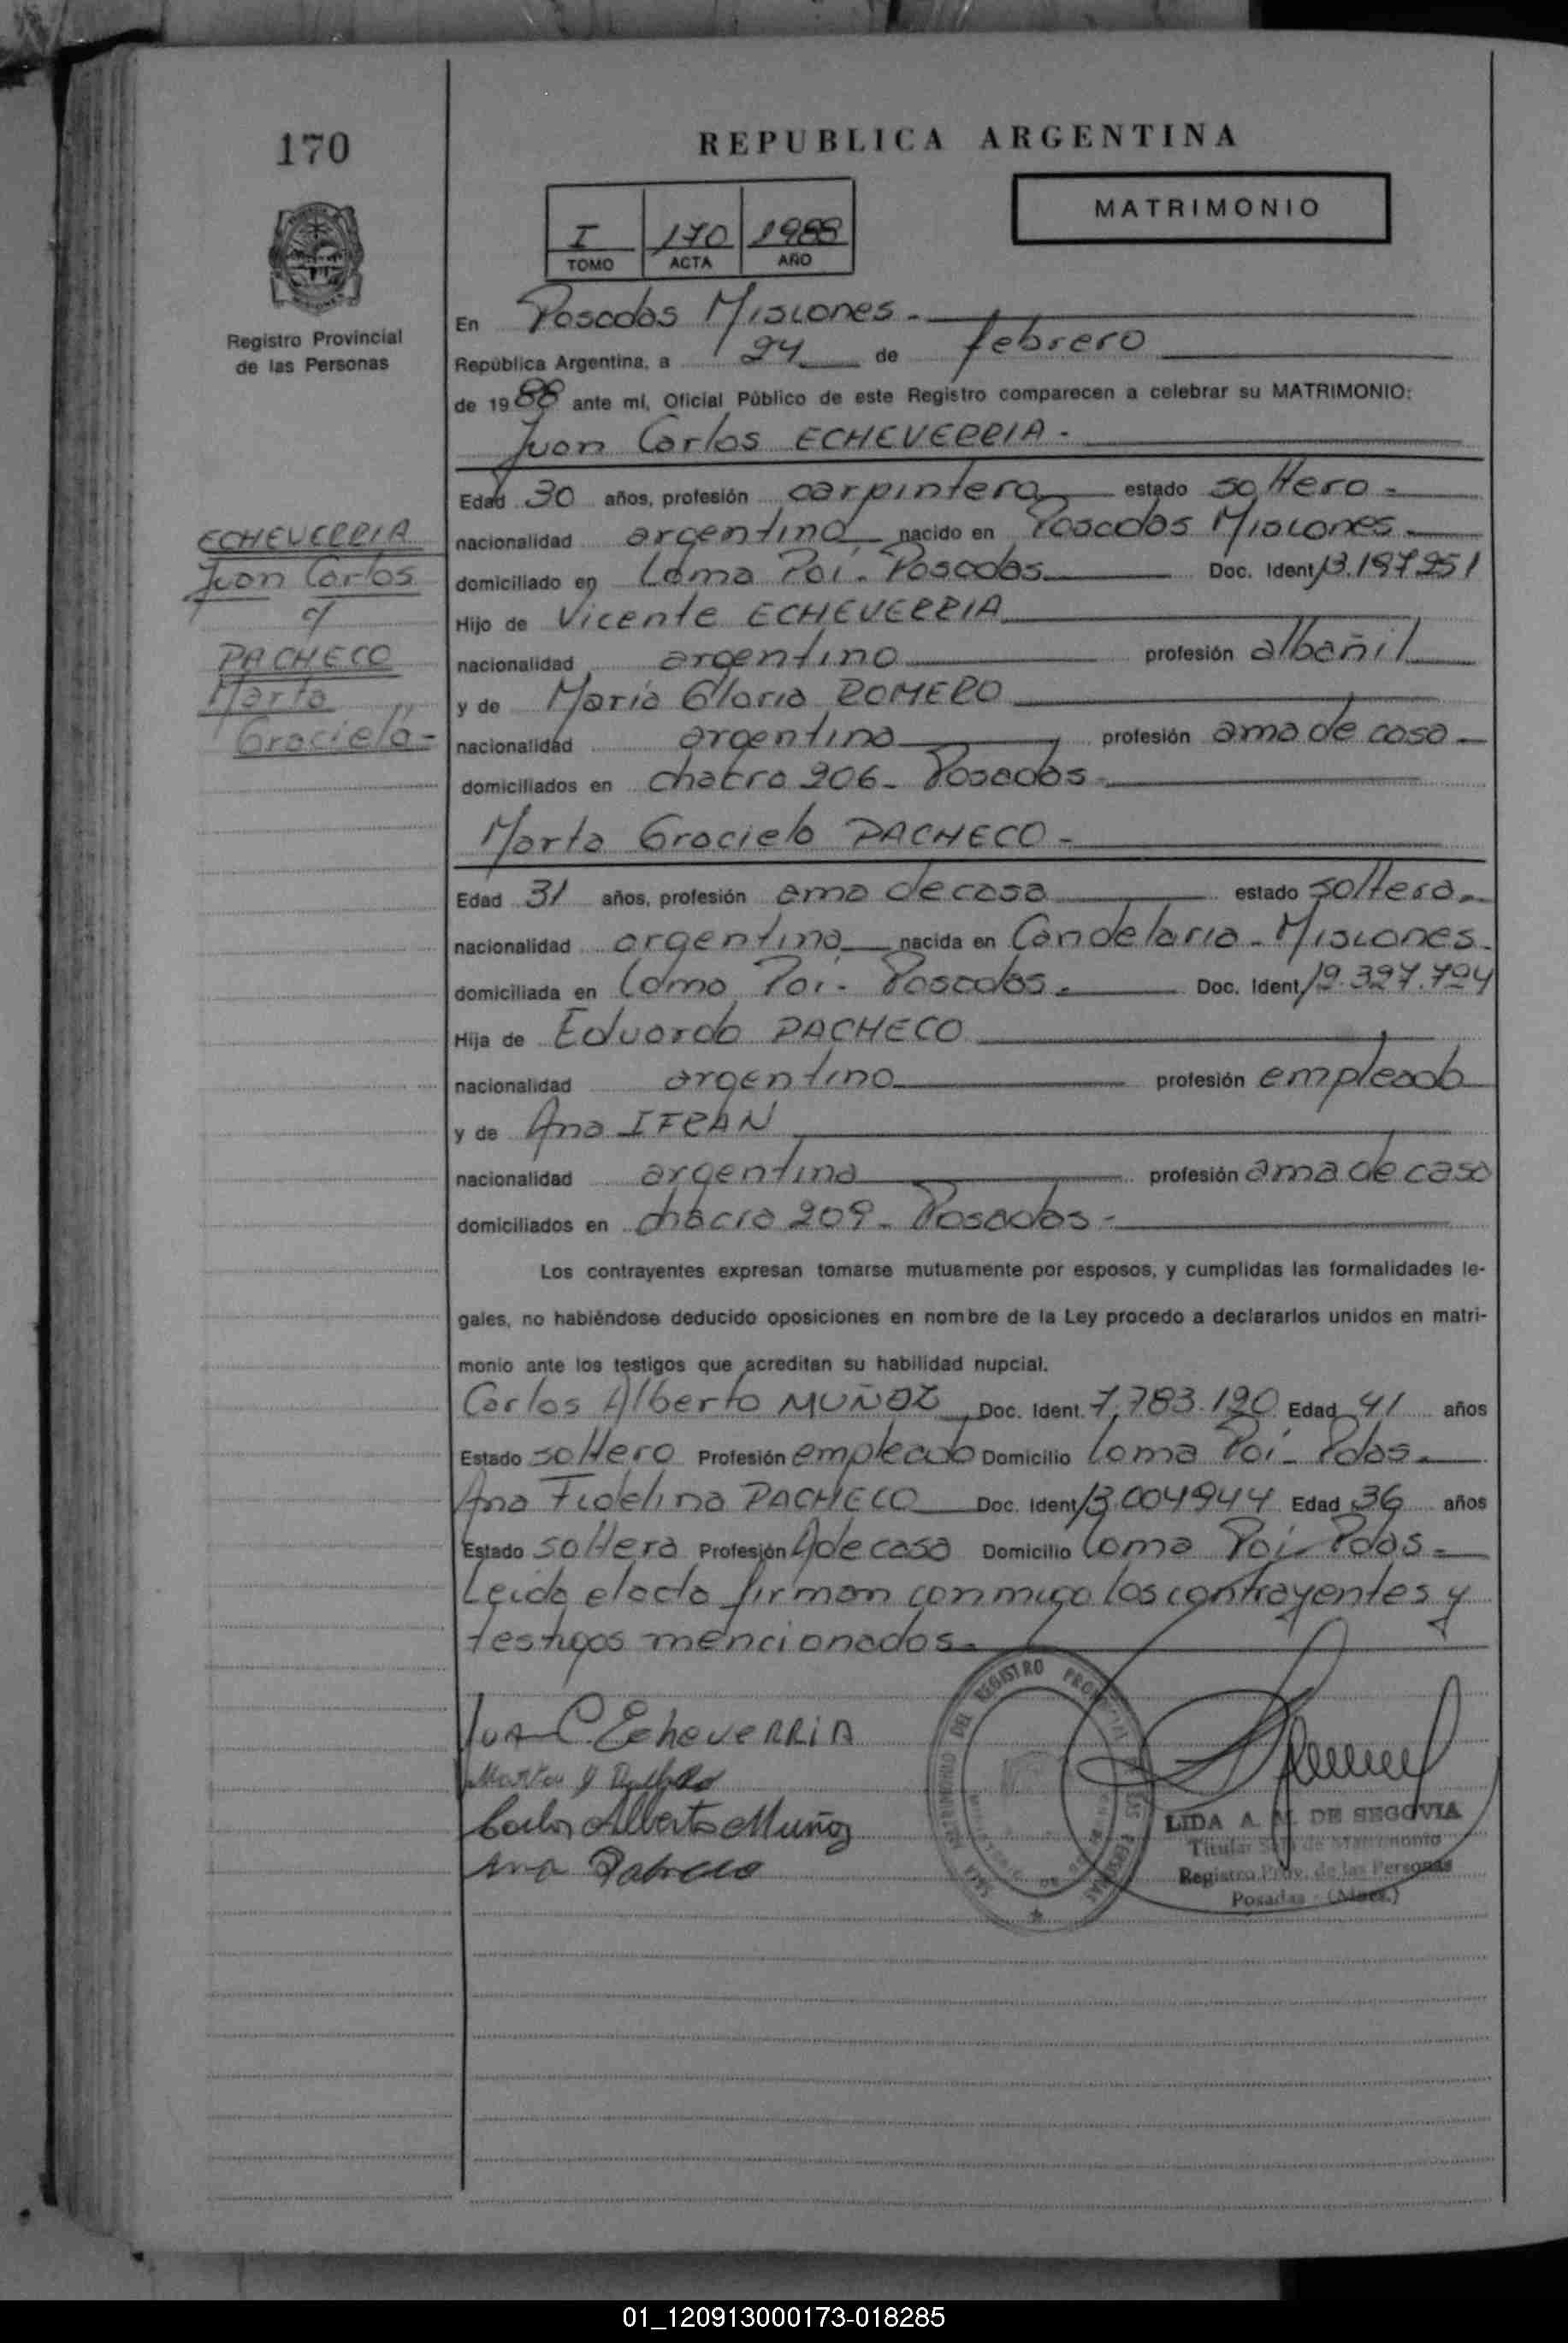 170
REPUBLICA ARGENTINA
MATRIMONIO
I 170 1988
TOMO ACTA AÑO
Registro Provincial
de las Personas
En Posadas Misiones.-
República Argentina, a 24 de febrero
de 1988 ante mí, Oficial Público de este Registro comparecen a celebrar su MATRIMONIO:
Juan Carlos ECHEVERRIA.-
Edad 30 años, profesión carpintero estado soltero.-
ECHEVERRIA
Juan Carlos
c/
PACHECO
Marta
Graciela.-
nacionalidad argentina nacido en Posadas Misiones.-
domiciliado en Loma Poi. Posadas Doc. Ident. 13.197.251
Hijo de Vicente ECHEVERRIA
nacionalidad argentino profesión albañil
y de María Gloria ROMERO
nacionalidad argentina profesión ama de casa.-
domiciliados en chacra 206- Posadas.-
Marta Graciela PACHECO.-
Edad 31 años, profesión ama de casa estado soltera.-
nacionalidad argentina nacida en Candelaria- Misiones.
domiciliada en Loma Poi. Posadas.- Doc. Ident. 12.397.724
Hija de Eduardo PACHECO
nacionalidad argentino profesión empleado
y de Ana IFRAN
nacionalidad argentina profesión ama de casa
domiciliados en chacra 209- Posadas.-
Los contrayentes expresan tomarse mutuamente por esposos, y cumplidas las formalidades le-
gales, no habiéndose deducido oposiciones en nombre de la Ley procedo a declararlos unidos en matri-
monio ante los testigos que acreditan su habilidad nupcial.
Carlos Alberto MUÑOZ Doc. Ident. 7.783.120 Edad 41 años
Estado soltero Profesión empleado Domicilio Loma Poi- Pdas.-
Ana Fidelina PACHECO Doc. Ident. 13.004944 Edad 36 años
Estado soltera Profesión A de casa Domicilio Loma Poi- Pdas.-
Leida el acta firman conmigo los contrayentes y
testigos mencionados.-
Juan C. EcheveRRiA
Marta
Carlos Alberto Muñoz
Ana Pacheco
DEL REGISTRO PROVINCIAL DE LAS PERSONAS
LIDA A. M. DE SEGOVIA
Titular Sala de Matrimonio
Registro Prov. de las Personas
Posadas - (Mnes.)
01_120913000173-018285